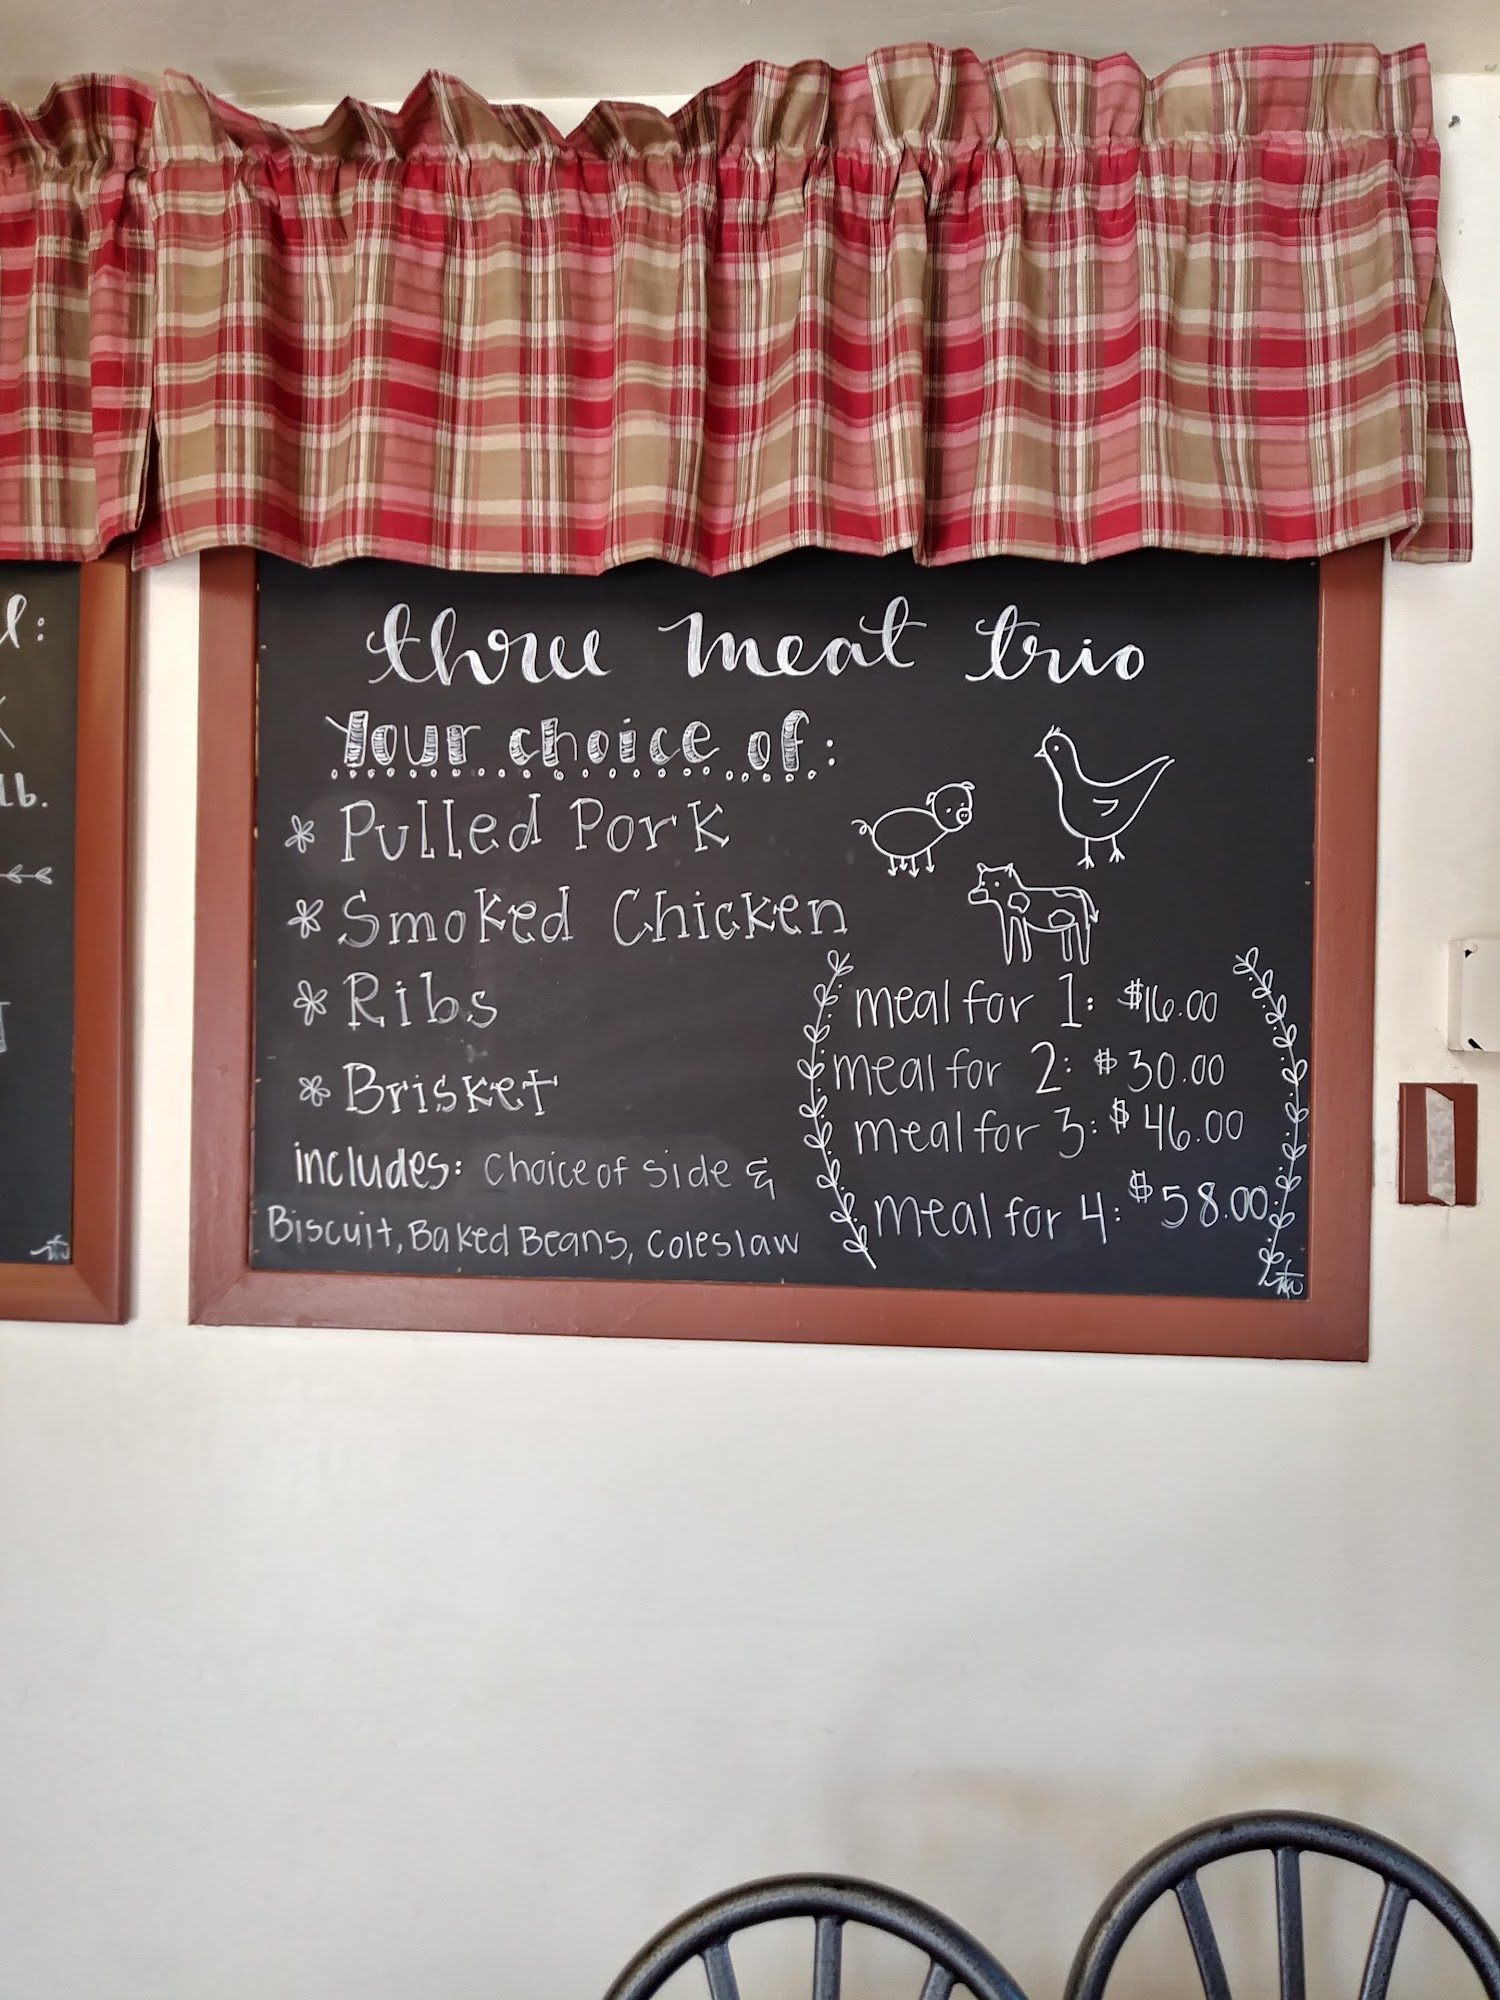 three meat trio
Your choice of:
Pulled Pork
Smoked Chicken
Ribs
Brisket
includes: Choice of side &
Biscuit, Baked Beans, coleslaw
meal for 1: $16.00
meal for 2: $30.00
meal for 3: $46.00
meal for 4: $58.00
lb.